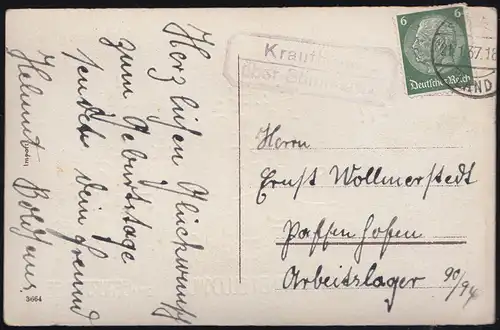 Herzlichen Glückwunsch
zum Geburtstage
sendet dein Freund
Helmut
3664
6 6
Deutsches Reich
.1.37.18
Herrn
Ernst Wollmerstedt
Paffenhofen
Arbeitslager 90/94